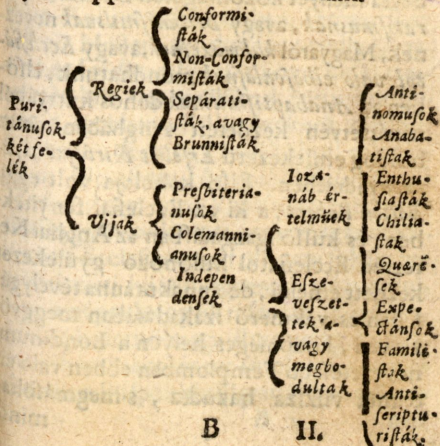 Puri-
tánusok
két fe-
lék
Regiek
Conformi-
sták
Non-Confor-
misták
Sepárati-
sták, avagy
Brunnisták
Ujjak
Presbiteria-
nusok
Colemanni-
anusok
Indepen
densek
Ioza-
náb ér-
telmüek
Esze-
veszet-
tek a-
vagy
megbo-
dultak
Anti-
nomusok
Anaba-
tistak
Enthu-
siasták
Chilia-
stak
Quærě-
sek
Expe-
ctánsok
Famili-
stak
Anti-
scriptu-
risták.
B II.